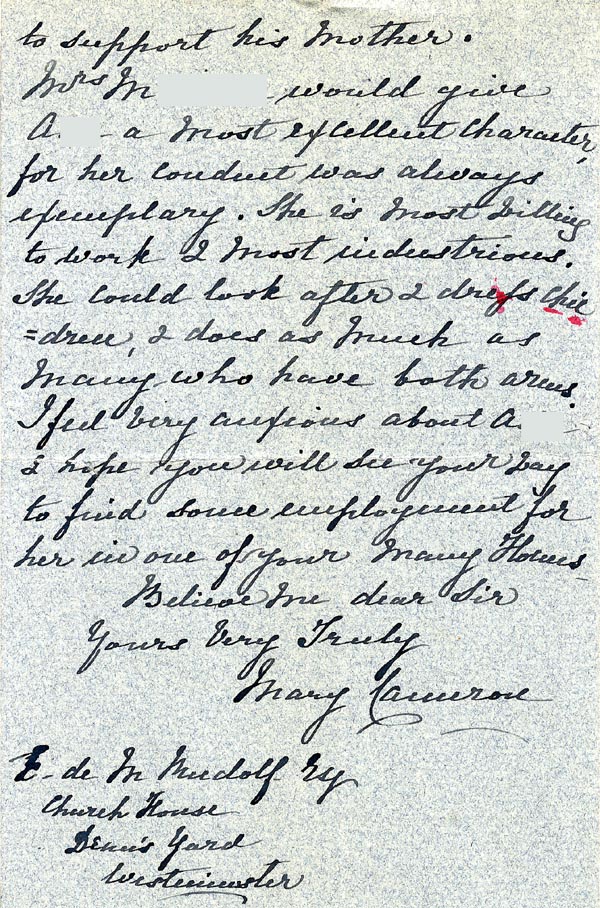 to support his Mother.
Mrs M would give
A - a most excellent character,
for her conduct was always
exemplary. She is most willing
to work & most industrious.
She could look after & dress chil
=dren, & does as much as
many who have both arms.
I feel very anxious about A
& hope you will see your way
to find some employment for
her in one of your many Homes
Believe me dear Sir
Yours Very Truly
Mary Cameron
E- de M Rudolf Esq
Church House
Dean's Yard
Westminster